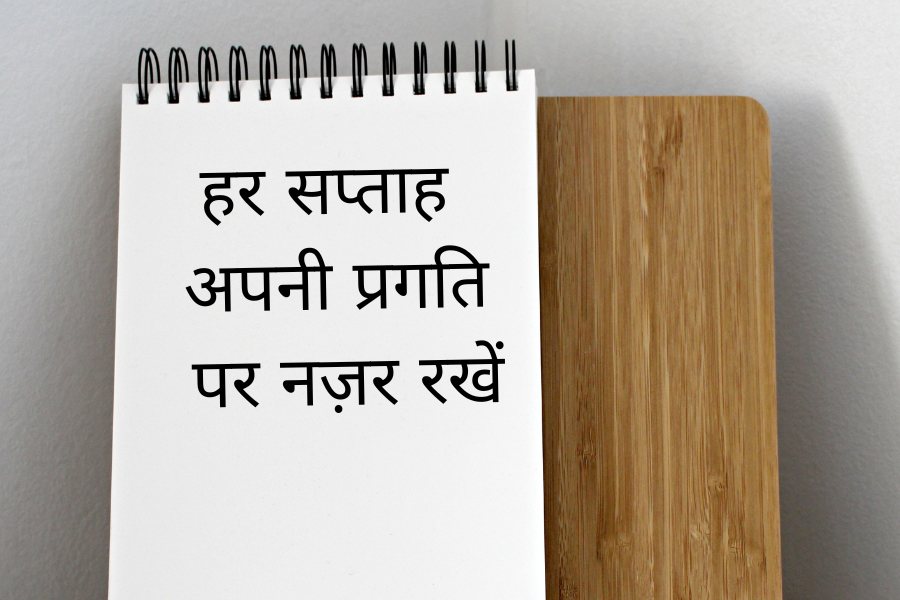 हर सप्ताह
अपनी प्रगति
पर नज़र रखें